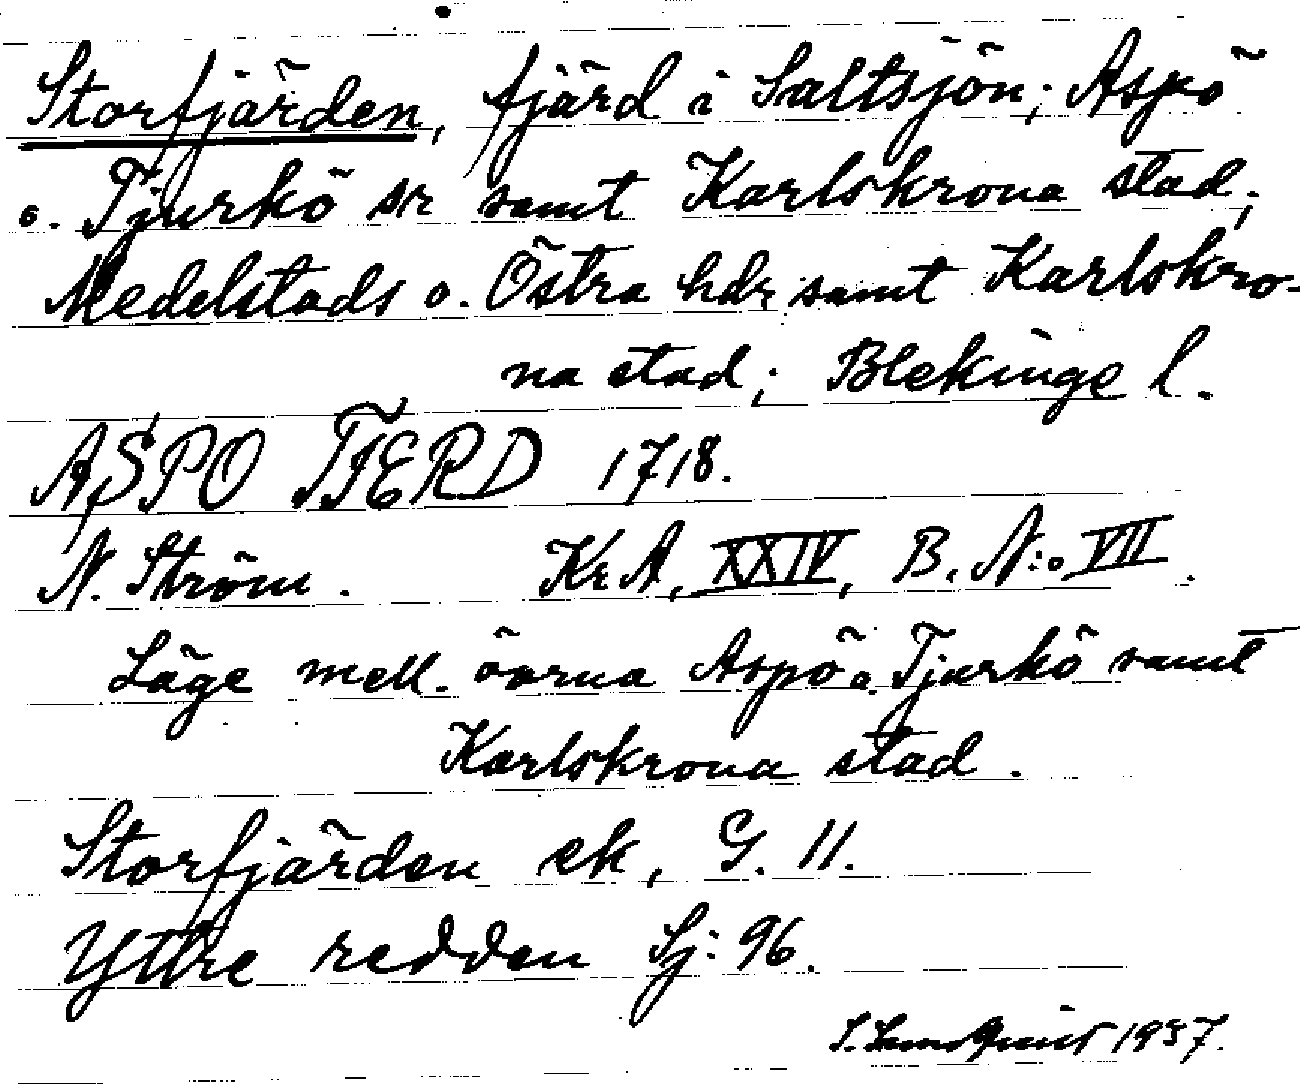 Storfjärden, fjärd i Saltsjön; Aspö
o. Tjurkö sr samt Karlskrona stad;
Medelstads o. Östra hdr samt Karlskro-
na stad; Blekinge l.
ASPO FIERD 1718.
N. Ström. Kr A, XXIV, B. N:o VII.
Läge mell. öarna Aspö o. Tjurkö samt
Karlskrona stad.
Storfjärden ek, G. 11.
Yttre redden Sj: 96.
1937.